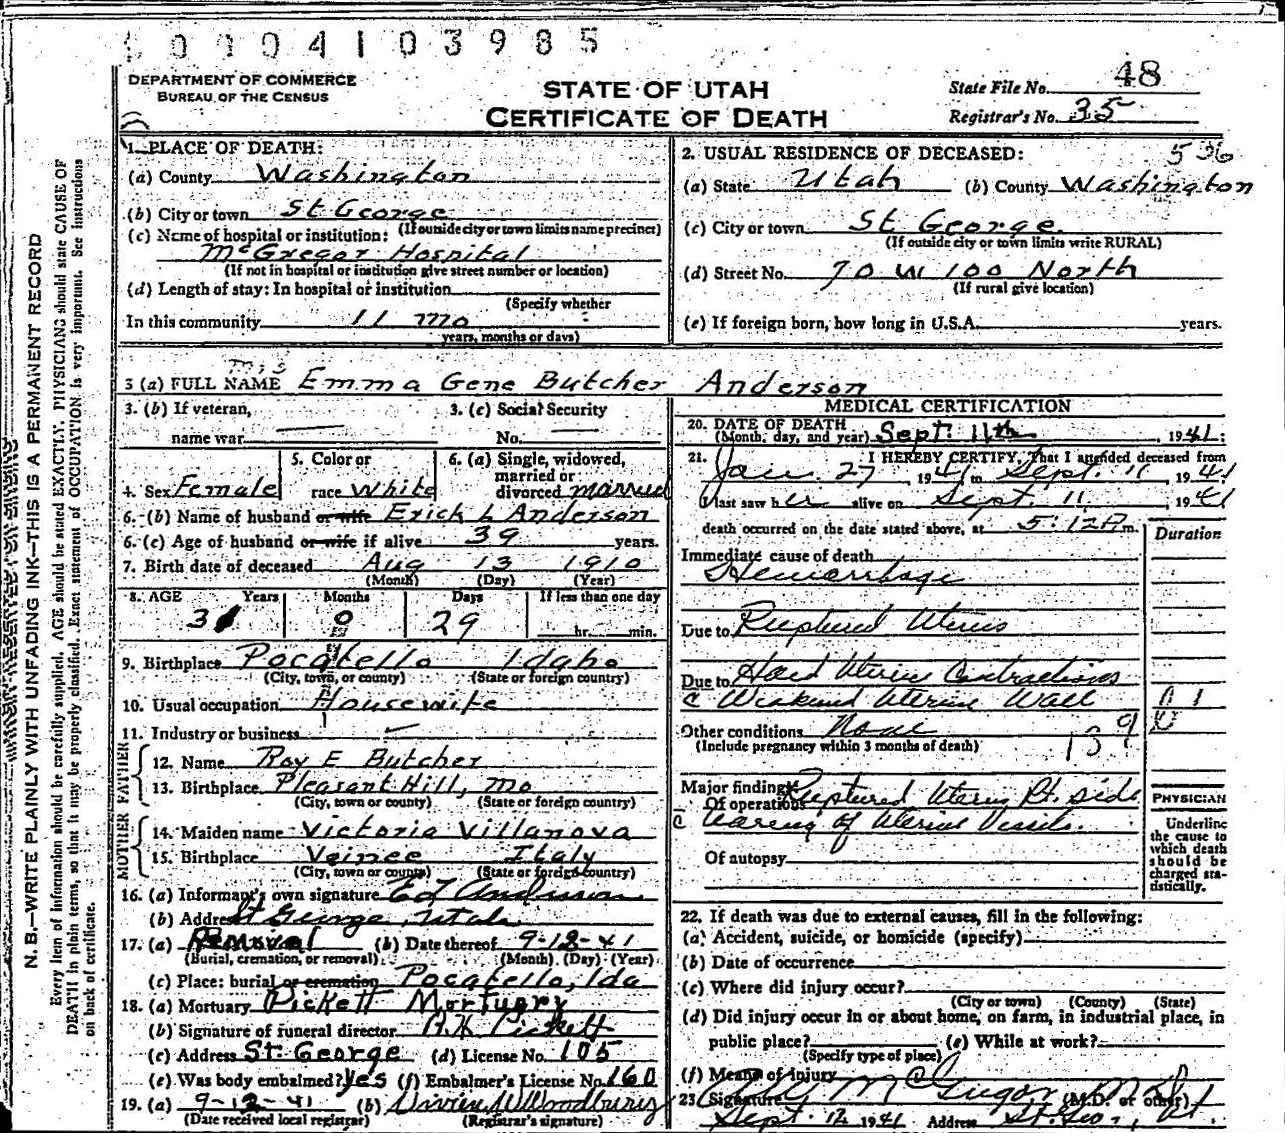 0004103985
DEPARTMENT OF COMMERCE
BUREAU OF THE CENSUS
STATE OF UTAH
CERTIFICATE OF DEATH
State File No. 48
Registrar's No. 35
1. PLACE OF DEATH:
(a) County Washington
(b) City or town St George
(If outside city or town limits name precinct)
(c) Name of hospital or institution:
McGregor Hospital
(If not in hospital or institution give street number or location)
(d) Length of stay: In hospital or institution
(Specify whether
In this community 11 mo
years, months or days)
2. USUAL RESIDENCE OF DECEASED: 536
(a) State Utah (b) County Washington
(c) City or town St George.
(If outside city or town limits write RURAL)
(d) Street No. 70 W 100 North
(If rural give location)
(e) If foreign born, how long in U.S.A. years.
3 (a) FULL NAME Mrs Emma Gene Butcher Anderson
3. (b) If veteran,
name war
3. (c) Social Security
No.
4. Sex Female
5. Color or
race White
6. (a) Single, widowed,
married or
divorced married
6. (b) Name of husband or wife Erick L Anderson
6. (c) Age of husband or wife if alive 39 years.
7. Birth date of deceased Aug 13 1910
(Month) (Day) (Year)
8. AGE Years Months Days If less than one day
31 0 29 hr. min.
9. Birthplace Pocatello Idaho
(City, town, or county) (State or foreign country)
10. Usual occupation Housewife
11. Industry or business
FATHER
12. Name Roy E Butcher
13. Birthplace Pleasant Hill, Mo
(City, town or county) (State or foreign country)
MOTHER
14. Maiden name Victoria Villanova
15. Birthplace Veinee Italy
(City, town or county) (State or foreign country)
16. (a) Informant's own signature E L Anderson
(b) Address St George, Utah
17. (a) Removal (b) Date thereof 9-12-41
(Burial, cremation, or removal) (Month) (Day) (Year)
(c) Place: burial or cremation Pocatello, Ida
18. (a) Mortuary Pickett Mortuary
(b) Signature of funeral director Pickett
(c) Address St. George (d) License No. 105
(e) Was body embalmed? yes (f) Embalmer's License No. 160
19. (a) 9-12-41 (b) Woodbury
(Date received local registrar) (Registrar's signature)
MEDICAL CERTIFICATION
20. DATE OF DEATH
(Month, day, and year) Sept. 11th, 1941:
21. I HEREBY CERTIFY, That I attended deceased from
Jan. 27 1941 to Sept. 11, 1941
I last saw her alive on Sept. 11, 1941
death occurred on the date stated above, at 5:12 P m.
Duration
Immediate cause of death
Hemorrhage
Due to Ruptured Uterus
Due to Hard Uterine Contractions
c Weakened Uterine Wall
Other conditions None
(Include pregnancy within 3 months of death)
Major findings
Of operations Ruptured Uterus Rt. side
c tearing of Uterine Vessels.
Of autopsy
PHYSICIAN
Underline
the cause to
which death
should be
charged sta-
tistically.
22. If death was due to external causes, fill in the following:
(a) Accident, suicide, or homicide (specify)
(b) Date of occurrence
(c) Where did injury occur?
(City or town) (County) (State)
(d) Did injury occur in or about home, on farm, in industrial place, in
public place? (e) While at work?
(Specify type of place)
(f) Means of injury
23 Signature McGregor (M.D. or other)
Sept. 12 1941 Address St. Geo., Ut
N. B.—WRITE PLAINLY WITH UNFADING INK—THIS IS A PERMANENT RECORD
Every item of information should be carefully supplied. AGE should be stated EXACTLY. PHYSICIANS should state CAUSE OF
DEATH in plain terms, so that it may be properly classified. Exact statement of OCCUPATION is very important. See instructions
on back of certificate.